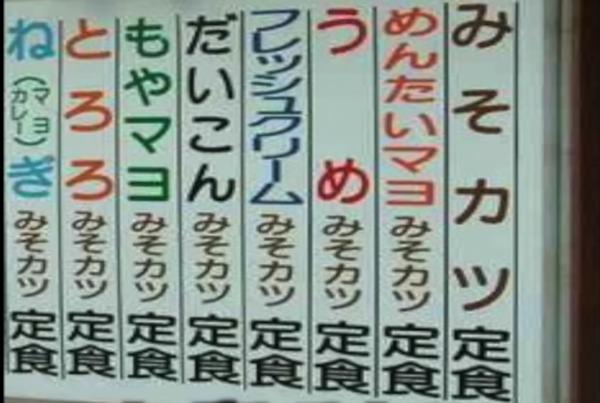 みそカツ定食
めんたいマヨみそカツ定食
うめみそカツ定食
フレッシュクリームみそカツ定食
だいこんみそカツ定食
もやマヨみそカツ定食
とろろみそカツ定食
ねぎ(マヨカレー)みそカツ定食